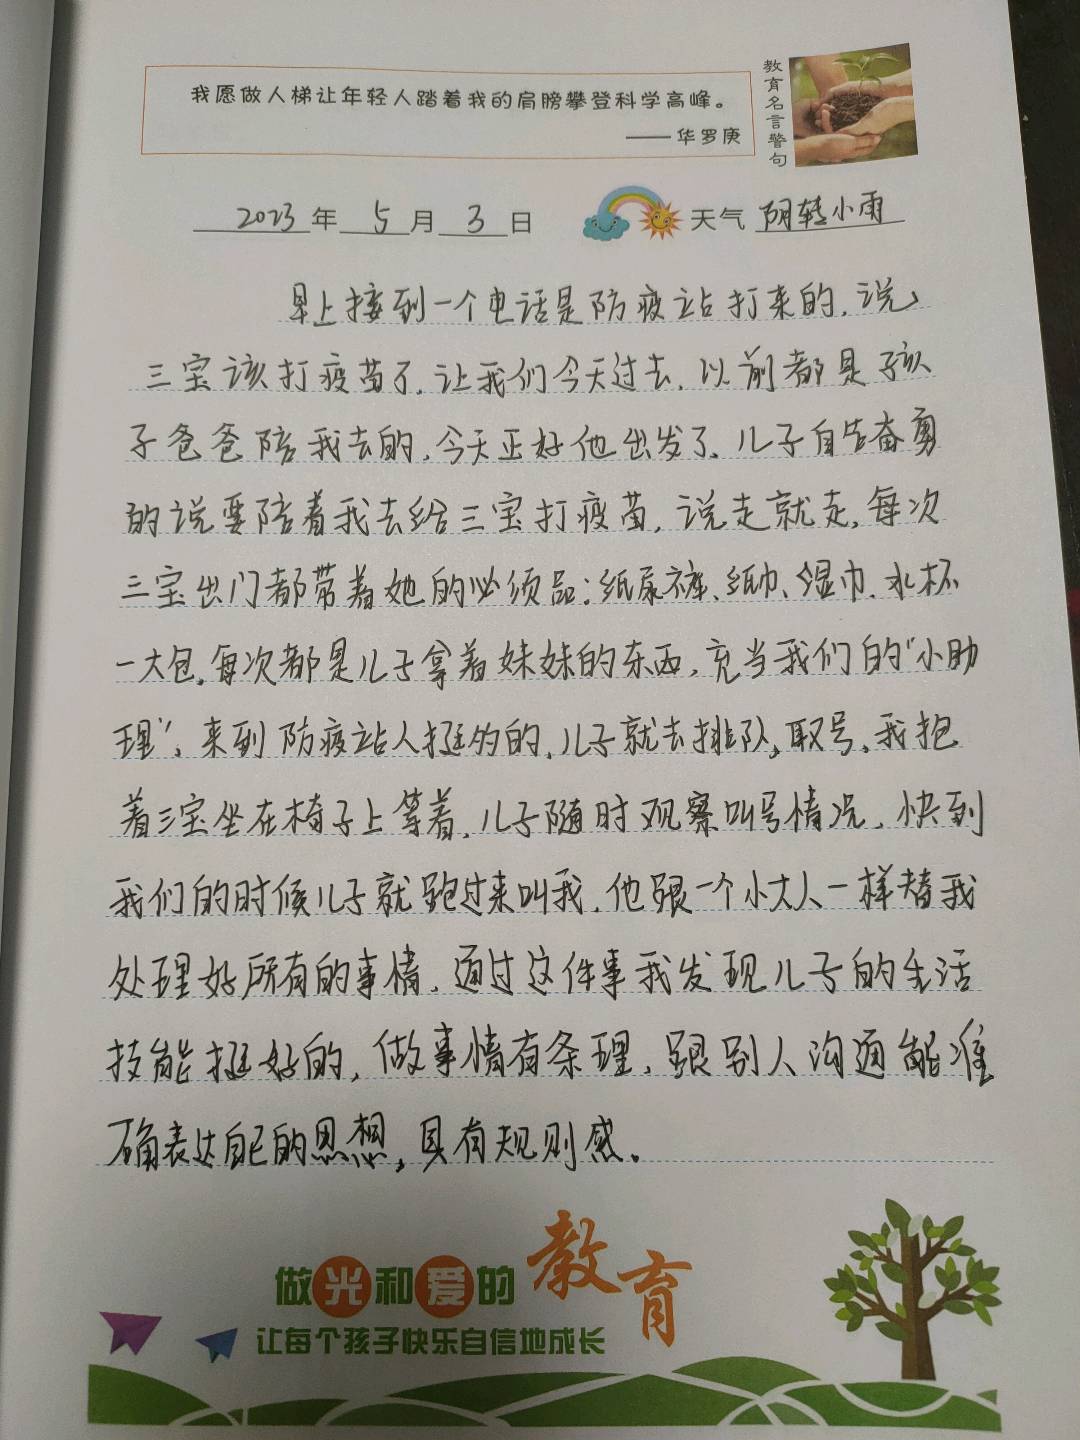 我愿做人梯让年轻人踏着我的肩膀攀登科学高峰。
——华罗庚
教育名言警句
2023年5月3日 天气 阴转小雨
早上接到一个电话是防疫站打来的,说
三宝该打疫苗了,让我们今天过去,以前都是孩
子爸爸陪我去的,今天正好他出发了。儿子自告奋勇
的说要陪着我去给三宝打疫苗,说走就走,每次
三宝出门都带着她的必须品:纸尿裤、纸巾、湿巾、水杯
一大包,每次都是儿子拿着妹妹的东西,充当我们的“小助
理”,来到防疫站人挺多的,儿子就去排队,取号,我抱
着三宝坐在椅子上等着,儿子随时观察叫号情况,快到
我们的时候儿子就跑过来叫我,他跟一个小大人一样替我
处理好所有的事情,通过这件事我发现儿子的生活
技能挺好的,做事情有条理,跟别人沟通能准
确表达自己的思想,具有规则感。
做光和爱的教育
让每个孩子快乐自信地成长